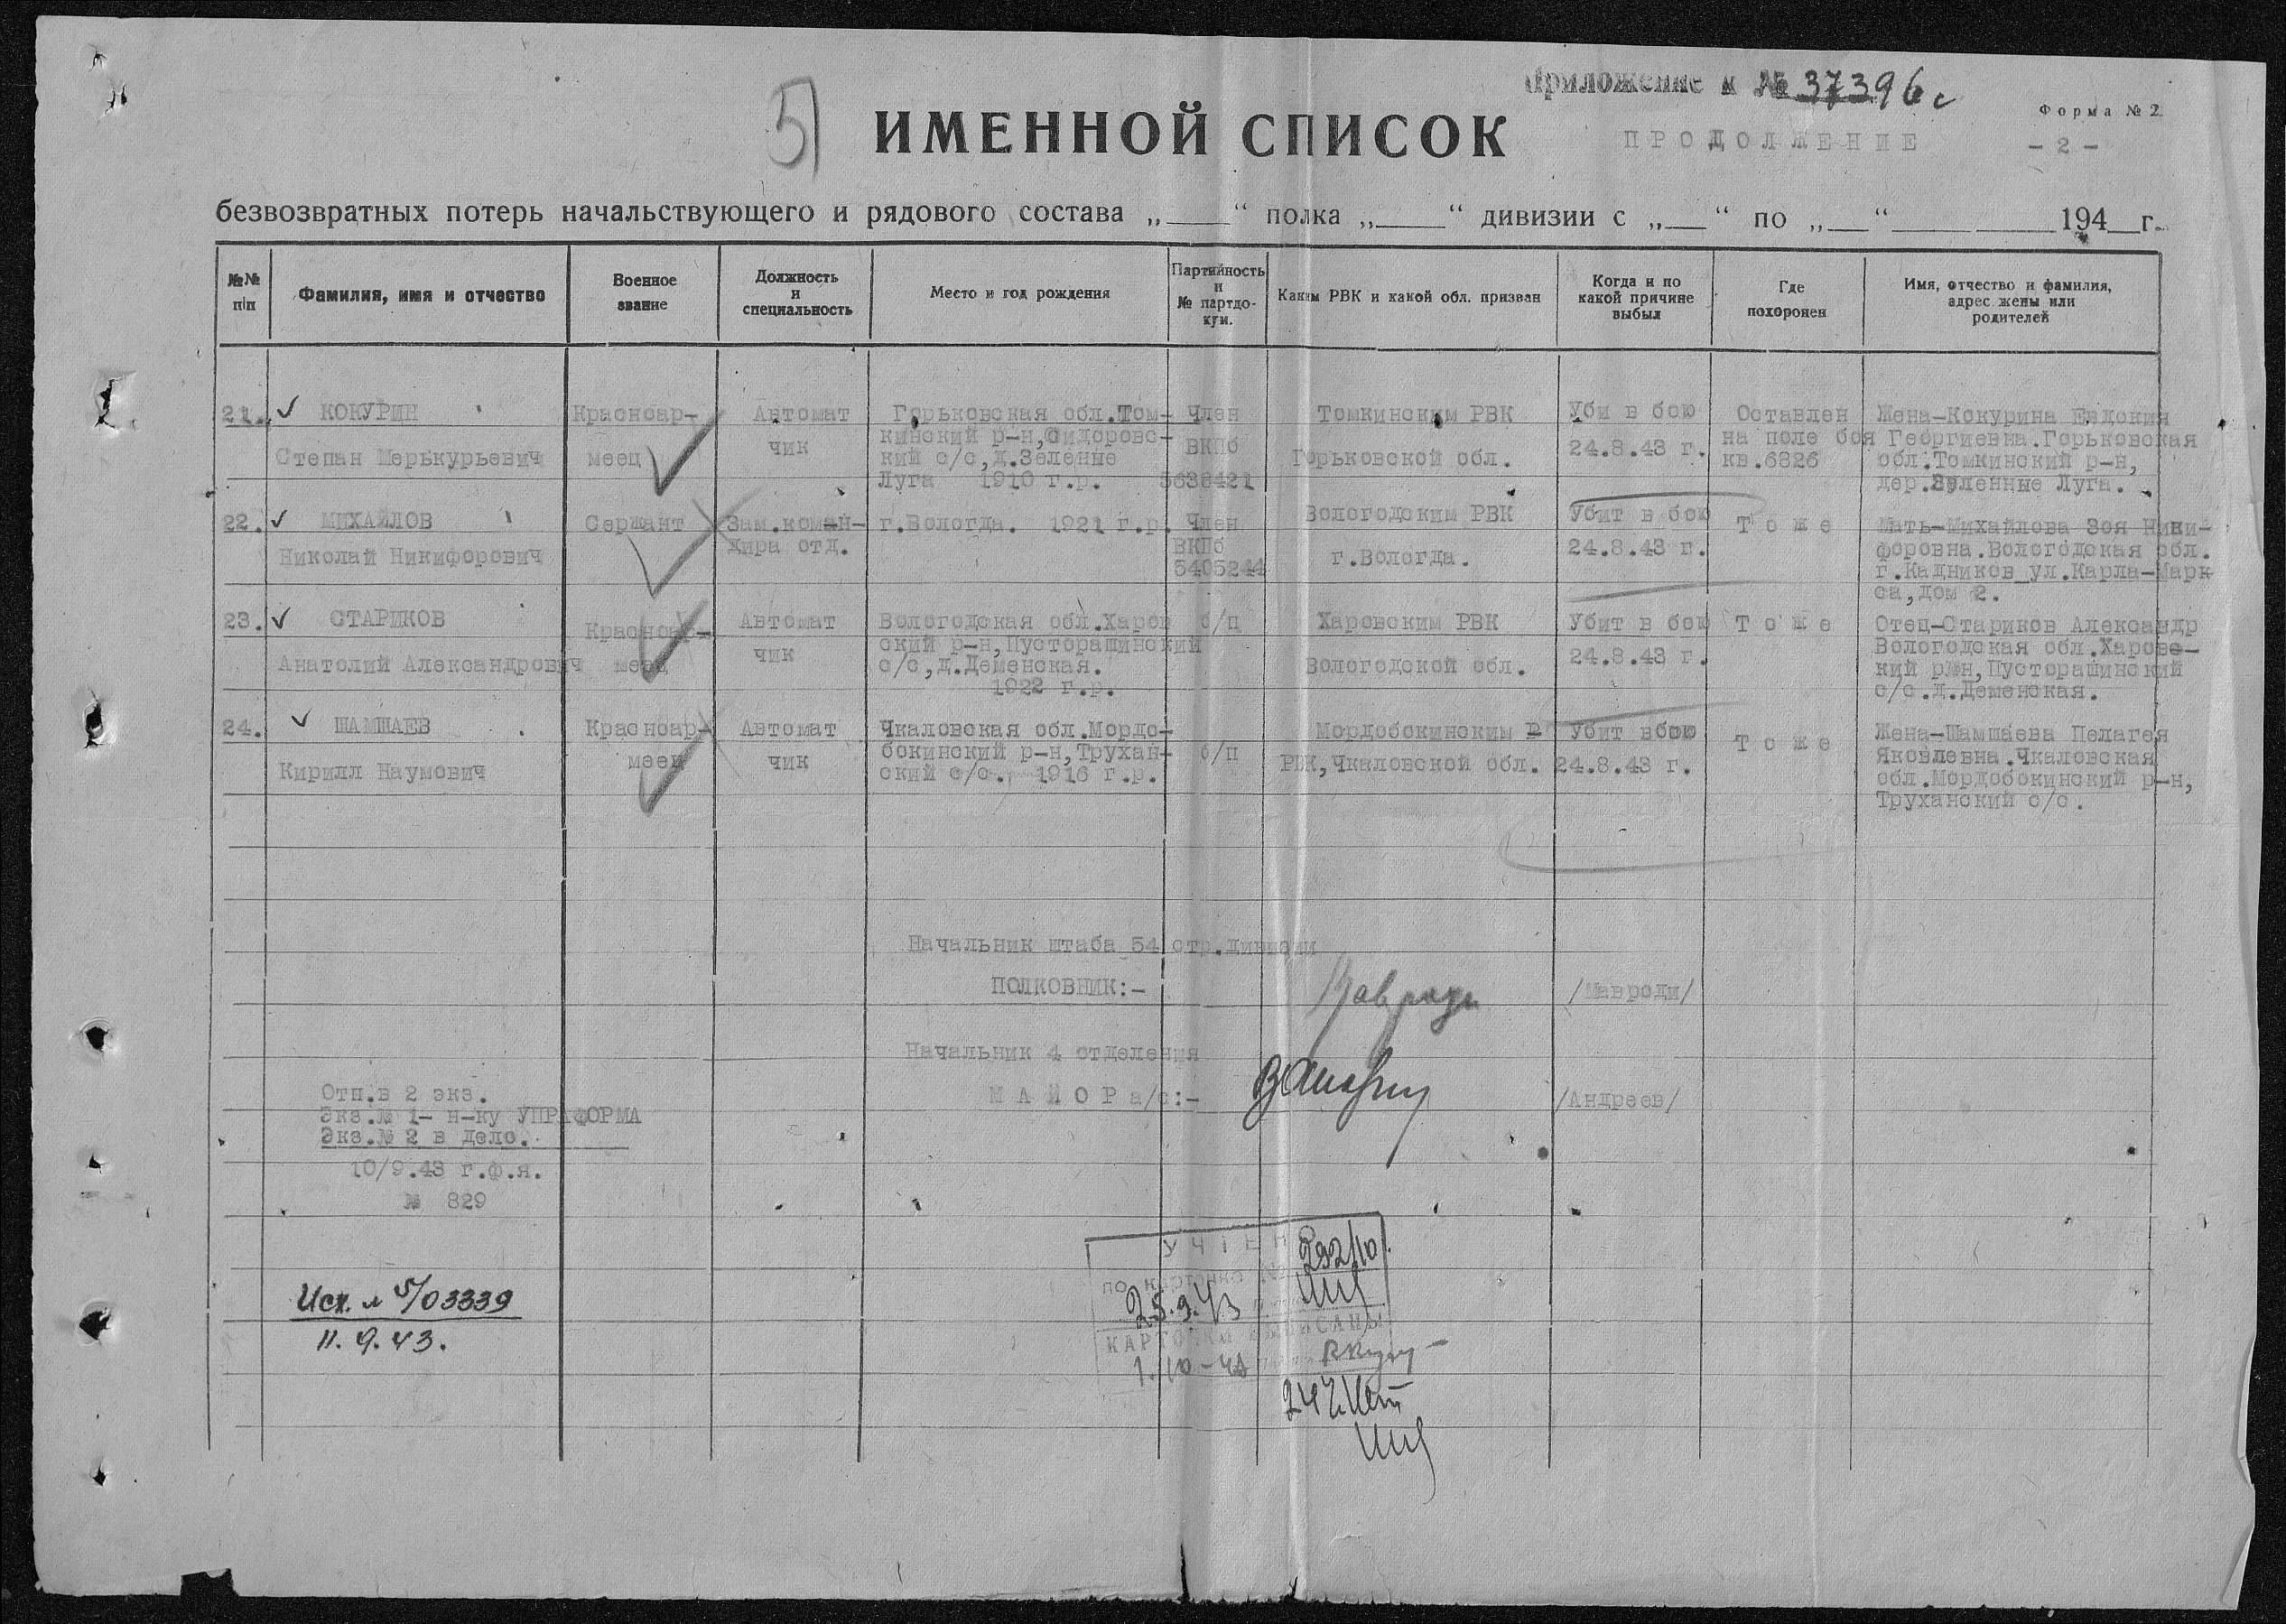 Приложение к № 37396с
Форма № 2
5
ИМЕННОЙ СПИСОК
ПРОДОЛЖЕНИЕ - 2 -
безвозвратных потерь начальствующего и рядового состава „ “ полка „ “ дивизии с „ “ по „ “ 194 г.
№№ п/п
Фамилия, имя и отчество
Военное звание
Должность и специальность
Место и год рождения
Партийность и № партдокум.
Каким РВК и какой обл. призван
Когда и по какой причине выбыл
Где похоронен
Имя, отчество и фамилия, адрес жены или родителей
21. КОКУРИН Красноар- Автомат Горьковская обл.Том- Член Томкинским РВК Уби в бою Оставлен Жена-Кокурина Евдокия
кинский р-н,Сидоровс- на поле боя Георгиевна.Горьковская
Степан Меркурьевич меец чик кий с/с,д.Зеленые ВКПб Горьковской обл. 24.8.43 г. кв.6826 обл.Томкинский р-н,
Луга 1910 г.р. 5636421 дер.Зеленные Луга.
22. МИХАЙЛОВ Сержант Зам.коман- г.Вологда. 1921 г.р. Член Вологодским РВК Убит в бою Тоже Мать-Михайлова Зоя Ники-
Николай Никифорович дира отд. ВКПб г.Вологда. 24.8.43 г. форовна.Вологодская обл.
5405244 г.Кадников ул.Карла-Марк
са,дом 2.
23. СТАРИКОВ Красноар- Автомат Вологодская обл.Харов б/п Харовским РВК Убит в бою Тоже Отец-Стариков Александр
ский р-н,Пусторашинский Вологодская обл.Харовс-
Анатолий Александрович меец чик с/с,д.Деменская. Вологодской обл. 24.8.43 г. кий р-н,Пусторашинский
1922 г.р. с/с.д.Деменская.
24. ШАМШАЕВ Красноар- Автомат Чкаловская обл.Мордо- Мордобокинским Р Убит вбою Тоже Жена-Шамшаева Пелагея
бокинский р-н,Трухан- б/п Яковлевна.Чкаловская
Кирилл Наумович меец чик ский с/с., 1916 г.р. РВК,Чкаловской обл. 24.8.43 г. обл.Мордобокинский р-н,
Труханский с/с.
Начальник штаба 54 стр.дивизии
ПОЛКОВНИК:- Мавроди /Мавроди/
Начальник 4 отделения
МАЙОР а/с:- /Андреев/
Отп.в 2 экз.
Экз.№ 1- н-ку УПРАФОРМА
Экз.№ 2 в дело.
10/9.43 г.ф.я.
№ 829
Исх. № 5/03339
11.9.43.
УЧТЕН
по карточке №
25.9.43
КАРТОЧКИ ВЫПИСАНЫ
1.10-43
24 чел